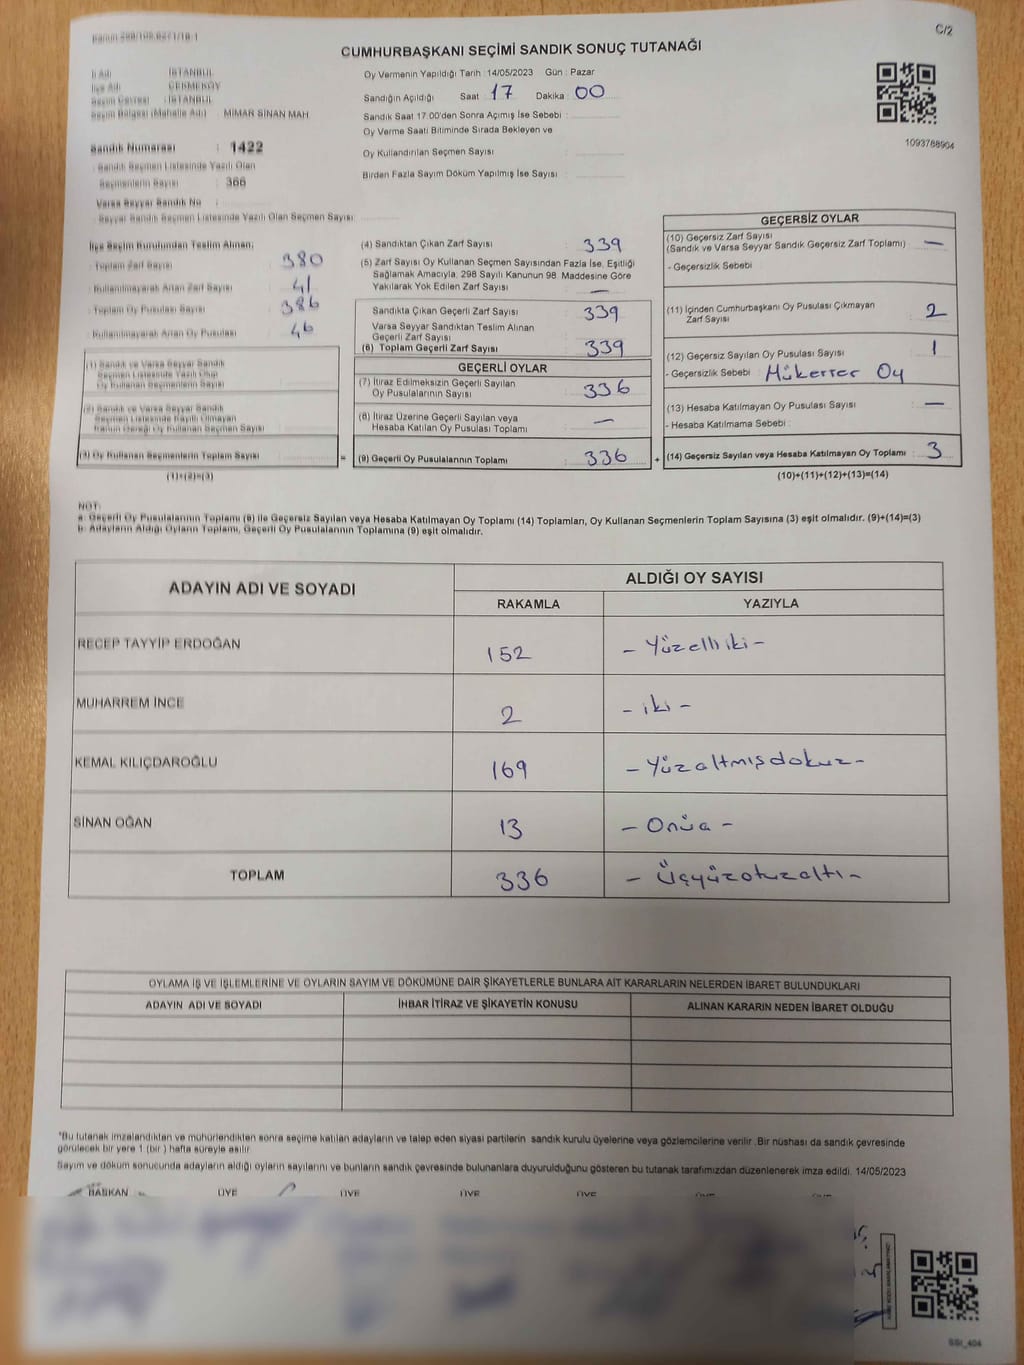 C/2
CUMHURBAŞKANI SEÇİMİ SANDIK SONUÇ TUTANAĞI
İl Adı : İSTANBUL
İlçe Adı : ÇEKMEKÖY
Seçim Çevresi : İSTANBUL
Seçim Bölgesi (Mahalle Adı) : MİMAR SİNAN MAH
Sandık Numarası : 1422
Sandık Seçmen Listesinde Yazılı Olan
Seçmenlerin Sayısı : 366
Varsa Seyyar Sandık No :
Seyyar Sandık Seçmen Listesinde Yazılı Olan Seçmen Sayısı
Oy Vermenin Yapıldığı Tarih :14/05/2023 Gün : Pazar
Sandığın Açıldığı Saat 17 Dakika 00
Sandık Saat 17.00'den Sonra Açımış İse Sebebi :
Oy Verme Saati Bitiminde Sırada Bekleyen ve
Oy Kullandırılan Seçmen Sayısı :
Birden Fazla Sayım Döküm Yapılmış İse Sayısı :
1093768904
İlçe Seçim Kurulundan Teslim Alınan;
Toplam Zarf Sayısı : 380
Kullanılmayarak Artan Zarf Sayısı : 41
Toplam Oy Pusulası Sayısı : 386
Kullanılmayarak Artan Oy Pusulası : 46
(1) Sandık ve Varsa Seyyar Sandık
Seçmen Listesinde Yazılı Olup
Oy Kullanan Seçmenlerin Sayısı :
(2) Sandık ve Varsa Seyyar Sandık
Seçmen Listesinde Kayıtlı Olmayan
Kanun Gereği Oy Kullanan Seçmen Sayısı :
(3) Oy Kullanan Seçmenlerin Toplam Sayısı :
(1)+(2)=(3)
(4) Sandıktan Çıkan Zarf Sayısı : 339
(5) Zarf Sayısı Oy Kullanan Seçmen Sayısından Fazla İse, Eşitliği
Sağlamak Amacıyla, 298 Sayılı Kanunun 98. Maddesine Göre
Yakılarak Yok Edilen Zarf Sayısı : —
Sandıkta Çıkan Geçerli Zarf Sayısı : 339
Varsa Seyyar Sandıktan Teslim Alınan
Geçerli Zarf Sayısı :
(6) Toplam Geçerli Zarf Sayısı : 339
GEÇERLİ OYLAR
(7) İtiraz Edilmeksizin Geçerli Sayılan
Oy Pusulalarının Sayısı : 336
(8) İtiraz Üzerine Geçerli Sayılan veya
Hesaba Katılan Oy Pusulası Toplamı : —
= (9) Geçerli Oy Pusulalarının Toplamı : 336
GEÇERSİZ OYLAR
(10) Geçersiz Zarf Sayısı
(Sandık ve Varsa Seyyar Sandık Geçersiz Zarf Toplamı) : —
- Geçersizlik Sebebi :
(11) İçinden Cumhurbaşkanı Oy Pusulası Çıkmayan
Zarf Sayısı : 2
(12) Geçersiz Sayılan Oy Pusulası Sayısı : 1
- Geçersizlik Sebebi : Mükerrer Oy
(13) Hesaba Katılmayan Oy Pusulası Sayısı : —
- Hesaba Katılmama Sebebi :
+ (14) Geçersiz Sayılan veya Hesaba Katılmayan Oy Toplamı : 3
(10)+(11)+(12)+(13)=(14)
NOT:
a- Geçerli Oy Pusulalarının Toplamı (9) ile Geçersiz Sayılan veya Hesaba Katılmayan Oy Toplamı (14) Toplamları, Oy Kullanan Seçmenlerin Toplam Sayısına (3) eşit olmalıdır. (9)+(14)=(3)
b- Adayların Aldığı Oyların Toplamı, Geçerli Oy Pusulalarının Toplamına (9) eşit olmalıdır.
ADAYIN ADI VE SOYADI ALDIĞI OY SAYISI
RAKAMLA YAZIYLA
RECEP TAYYİP ERDOĞAN 152 – Yüzelliiki –
MUHARREM İNCE 2 – iki –
KEMAL KILIÇDAROĞLU 169 – Yüzaltmışdokuz –
SİNAN OĞAN 13 – Onüç –
TOPLAM 336 – Üçyüzotuzaltı –
OYLAMA İŞ VE İŞLEMLERİNE VE OYLARIN SAYIM VE DÖKÜMÜNE DAİR ŞİKAYETLERLE BUNLARA AİT KARARLARIN NELERDEN İBARET BULUNDUKLARI
ADAYIN ADI VE SOYADI İHBAR İTİRAZ VE ŞİKAYETİN KONUSU ALINAN KARARIN NEDEN İBARET OLDUĞU
*Bu tutanak imzalandıktan ve mühürlendikten sonra seçime katılan adayların ve talep eden siyasi partilerin sandık kurulu üyelerine veya gözlemcilerine verilir .Bir nüshası da sandık çevresinde
görülecek bir yere 1 (bir ) hafta süreyle asılır.
Sayım ve döküm sonucunda adayların aldığı oyların sayılarını ve bunların sandık çevresinde bulunanlara duyurulduğunu gösteren bu tutanak tarafımızdan düzenlenerek imza edildi. 14/05/2023
BAŞKAN ÜYE ÜYE ÜYE ÜYE
SSI_404